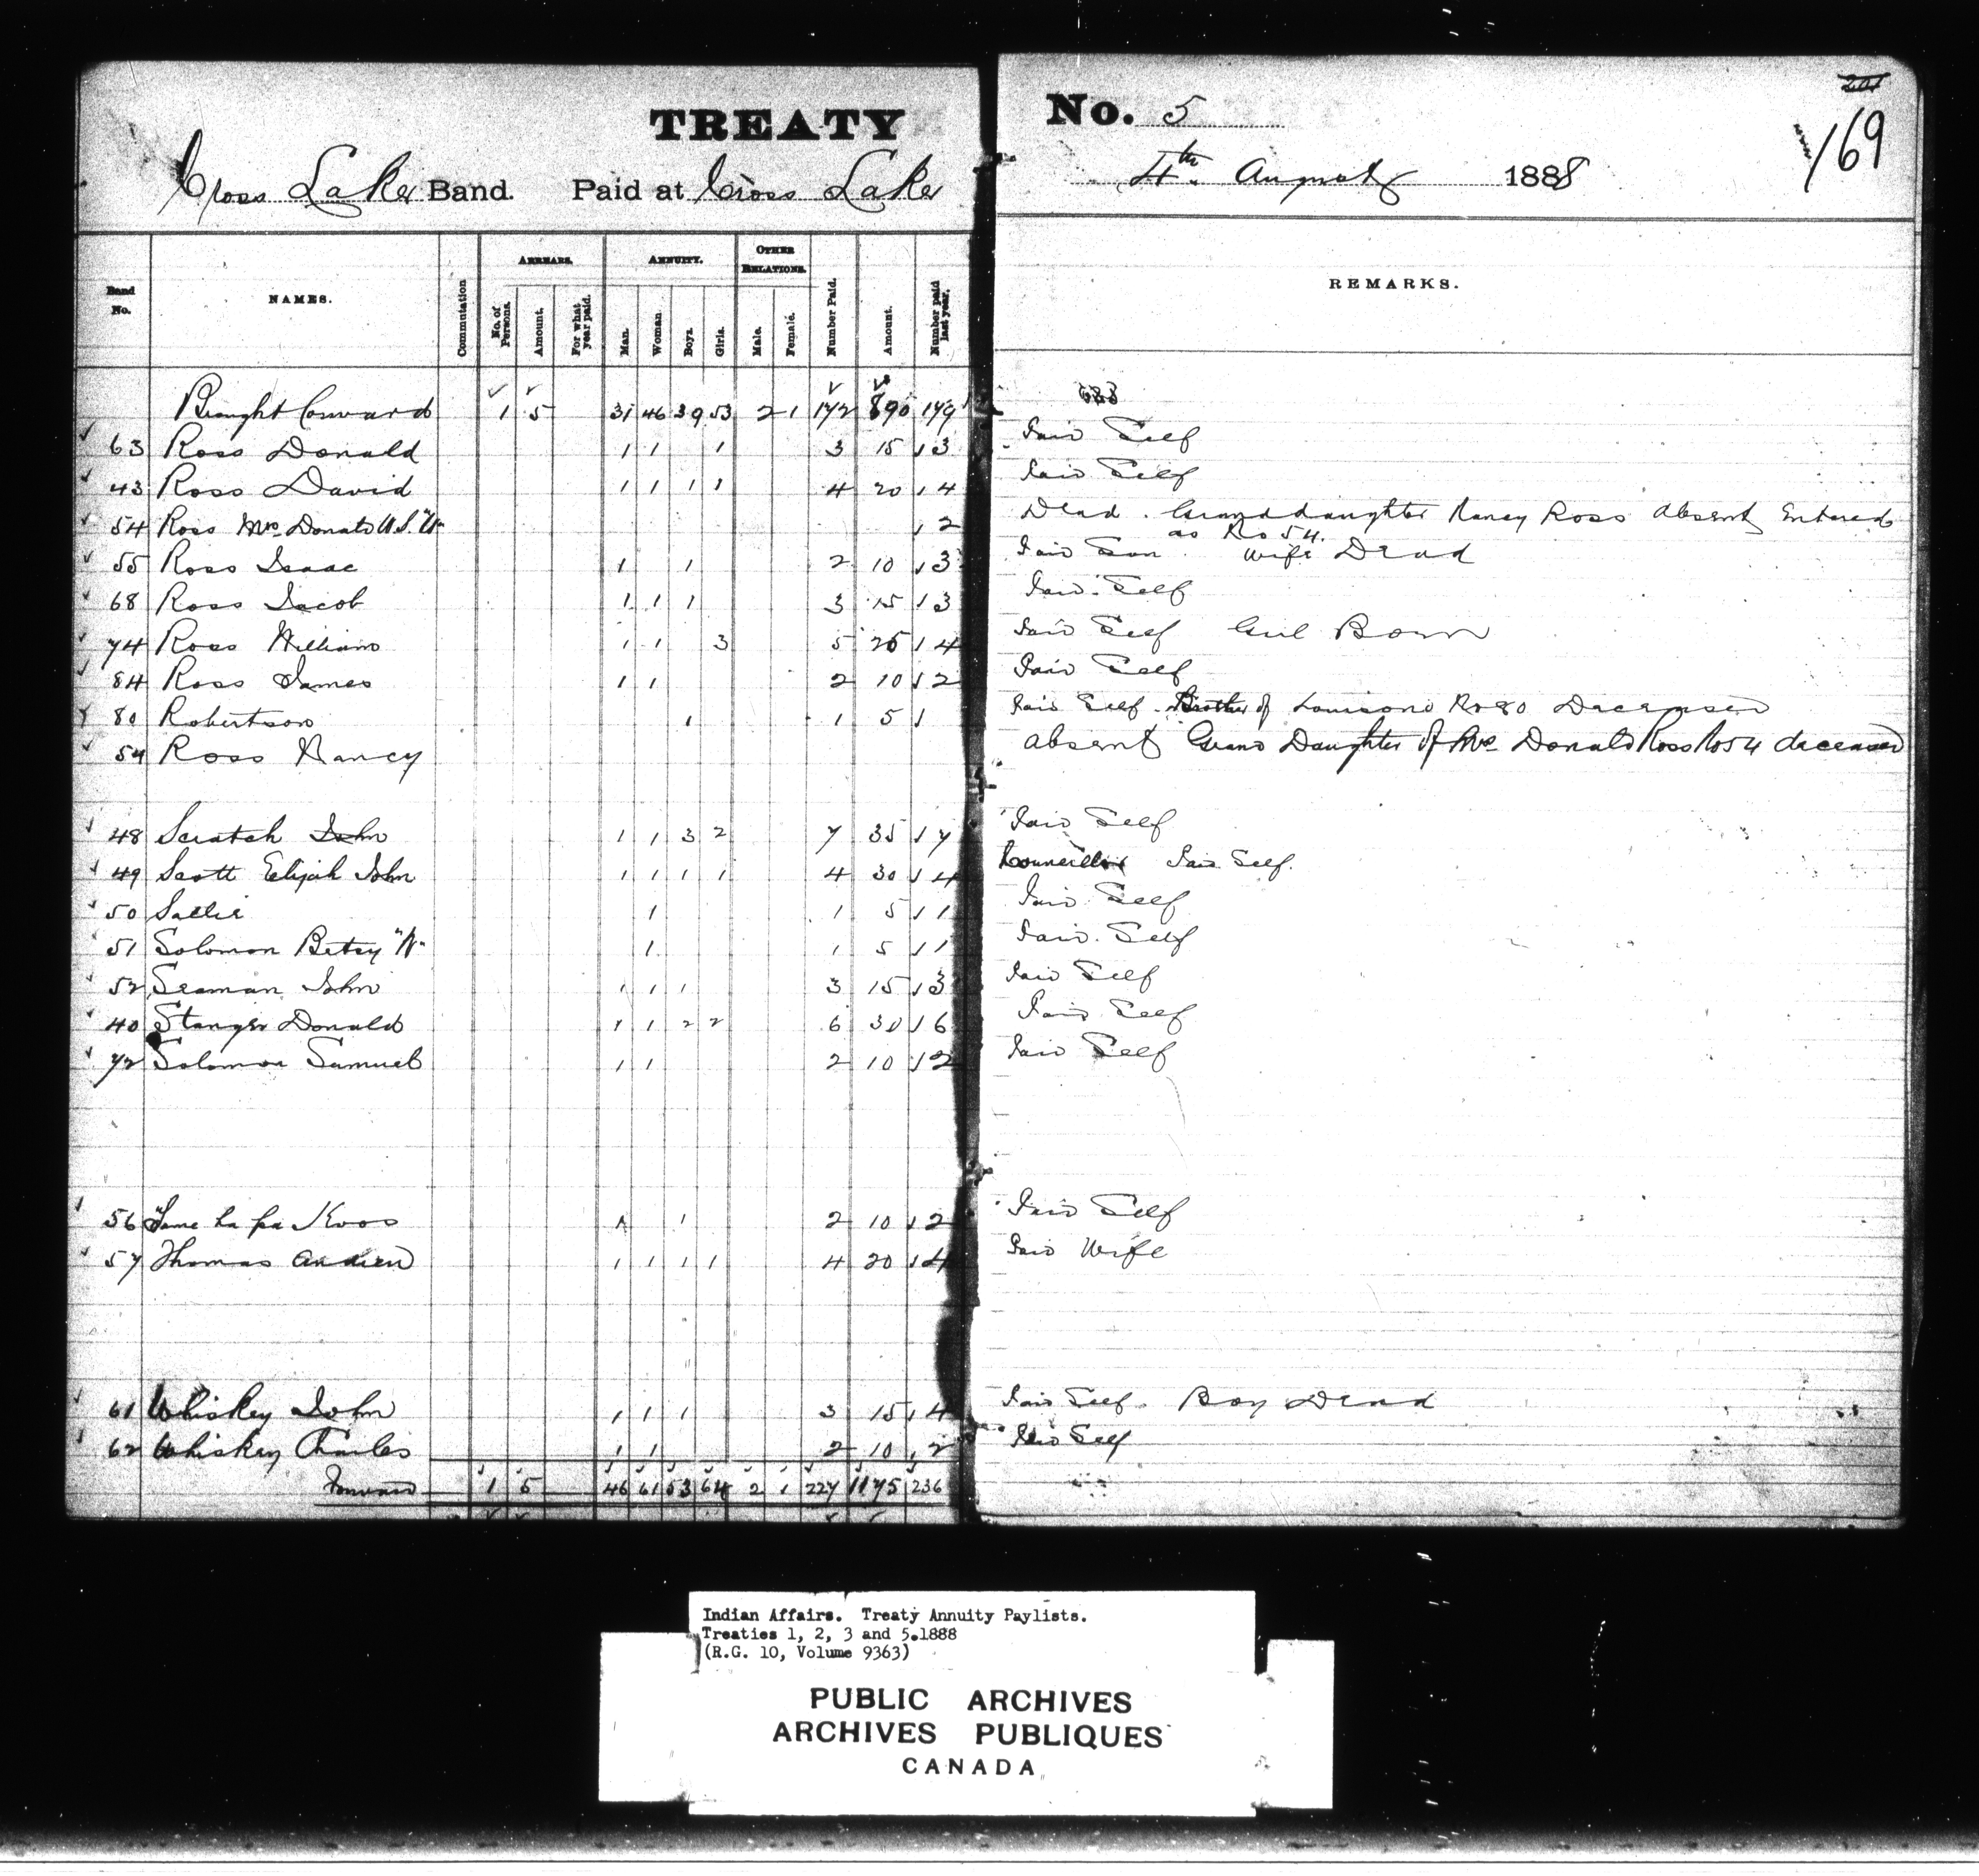 TREATY No. 5
201
169
Cross Lake Band. Paid at Cross Lake 4th August 1888
Band No. NAMES. Commutation ARREARS. No. of Persons. Amount. For what year paid. ANNUITY. Man. Woman. Boys. Girls. OTHER RELATIONS. Male. Female. Number Paid. Amount. Number paid last year. REMARKS.
Brought Forward 1 5 31 46 39 53 2 1 172 890 179
63 Ross Donald 1 1 1 3 15 3 Paid Self
43 Ross David 1 1 1 1 4 20 4 Paid Self
54 Ross Mrs Donald 2 Dead. Granddaughter Nancy Ross Absent Entered
as No 54.
55 Ross Isaac 1 1 2 10 3 Paid Son. Wife Dead
68 Ross Jacob 1 1 1 3 15 3 Paid Self
74 Ross William 1 1 3 5 25 4 Paid Self Girl Born
84 Ross James 1 1 2 10 2 Paid Self
80 Robertson 1 1 5 Paid Self. Brother of No 80 Deceased
54 Ross Nancy Absent Grand Daughter of Mrs Donald Ross No 54 deceased
48 Scratch John 1 1 3 2 7 35 7 Paid Self
49 Scott Elijah John 1 1 1 1 4 30 4 Councillor Paid Self.
50 Sallie 1 1 5 1 Paid Self
51 Solomon Betsy "W" 1 1 5 1 Paid Self
52 Seaman John 1 1 1 3 15 3 Paid Self
40 Stanger Donald 1 1 2 2 6 30 6 Paid Self
72 Solomon Samuel 1 1 2 10 2 Paid Self
56 ha pa Koos 1 1 2 10 2 Paid Self
57 Thomas Andrew 1 1 1 1 4 20 4 Paid Wife
61 Whiskey John 1 1 1 3 15 4 Paid Self. Boy Dead
62 Whiskey Charles 1 1 2 10 2 Paid Self
Forward 1 5 46 61 53 64 2 1 227 1175 236
Indian Affairs. Treaty Annuity Paylists.
Treaties 1, 2, 3 and 5.1888
(R.G. 10, Volume 9363)
PUBLIC ARCHIVES
ARCHIVES PUBLIQUES
CANADA